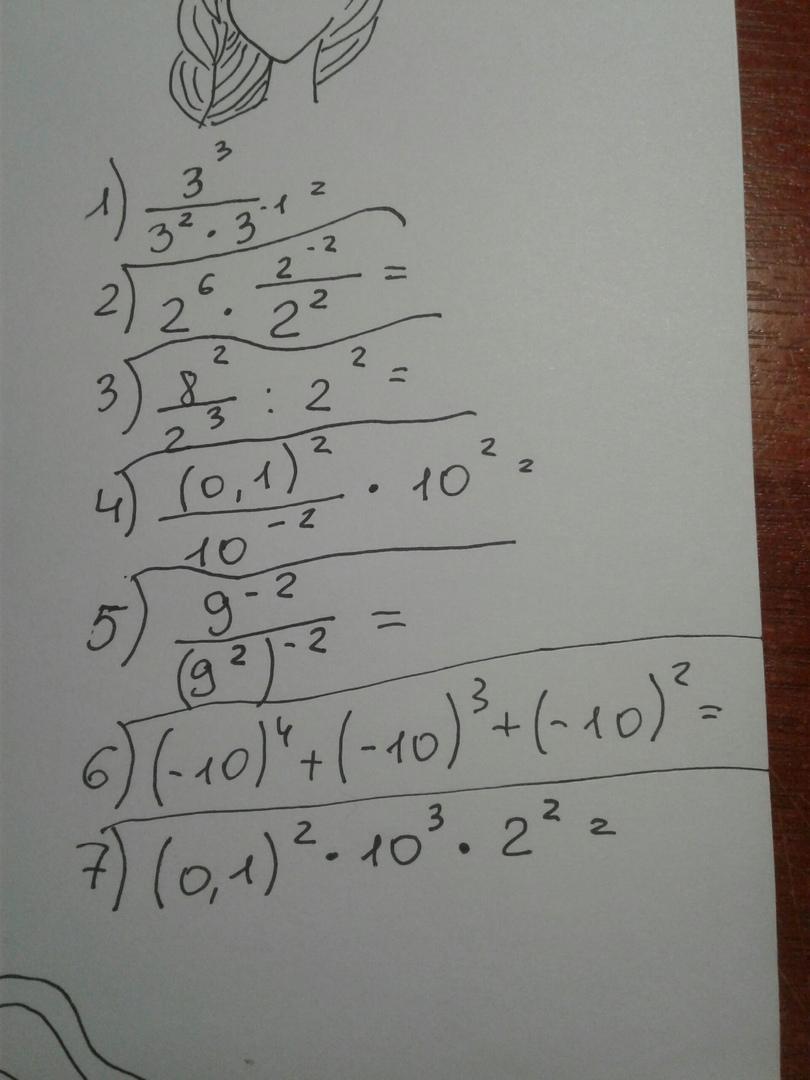 1) 3³/(3² · 3⁻¹) =
2) 2⁶ · 2⁻²/2² =
3) 8²/2³ : 2² =
4) (0,1)²/10⁻² · 10² =
5) 9⁻²/(9²)⁻² =
6) (-10)⁴ + (-10)³ + (-10)² =
7) (0,1)² · 10³ · 2² =